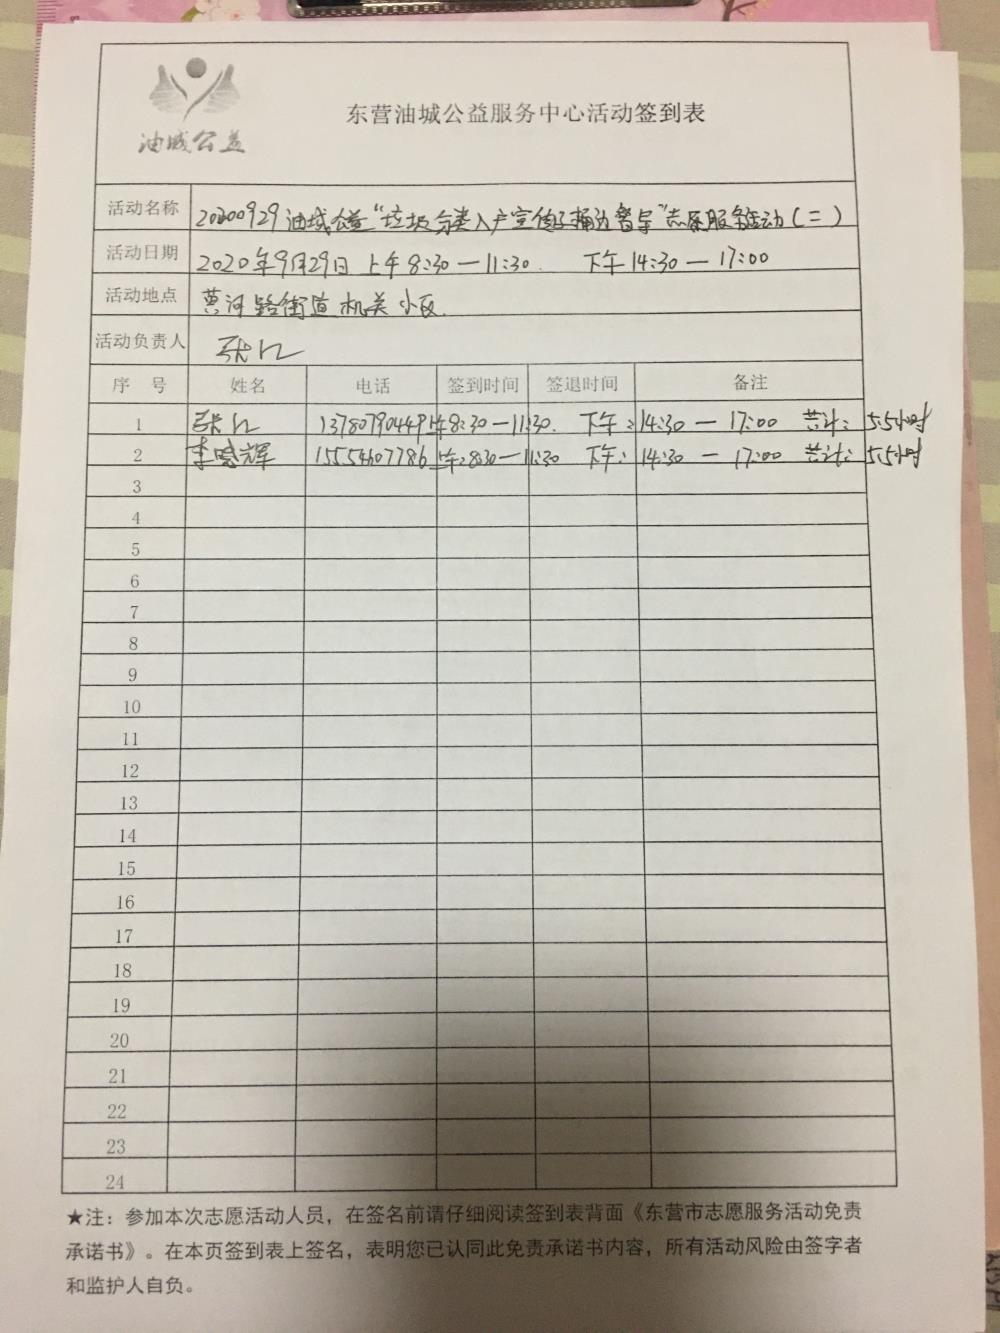 油城公益
东营油城公益服务中心活动签到表
活动名称 20200929油城公益"垃圾分类入户宣传及桶边督导"志愿服务活动(二)
活动日期 2020年9月29日 上午8:30—11:30. 下午14:30—17:00
活动地点 黄河路街道机关小区.
活动负责人
序号 姓名 电话 签到时间 签退时间 备注
1 13780790449 上午8:30—11:30. 下午:14:30—17:00 共计:5.5小时
2 李晓辉 15554607786 上午:8:30—11:30 下午:14:30—17:00 共计:5.5小时
3
4
5
6
7
8
9
10
11
12
13
14
15
16
17
18
19
20
21
22
23
24
★注：参加本次志愿活动人员，在签名前请仔细阅读签到表背面《东营市志愿服务活动免责
承诺书》。在本页签到表上签名，表明您已认同此免责承诺书内容，所有活动风险由签字者
和监护人自负。